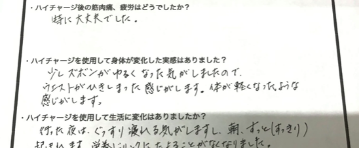 ・ハイチャージ後の筋肉痛、疲労はどうでしたか?
特に大丈夫でした。
・ハイチャージを使用して身体が変化した実感はありましたか?
少しズボンがゆるくなった気がしましたので、
ウエストがひきしまった感じがします。体が軽くなったような
感じがします。
・ハイチャージを使用して生活に変化はありましたか?
夜は、ぐっすり寝れる気がしますし、朝、ずっと(すっきり)